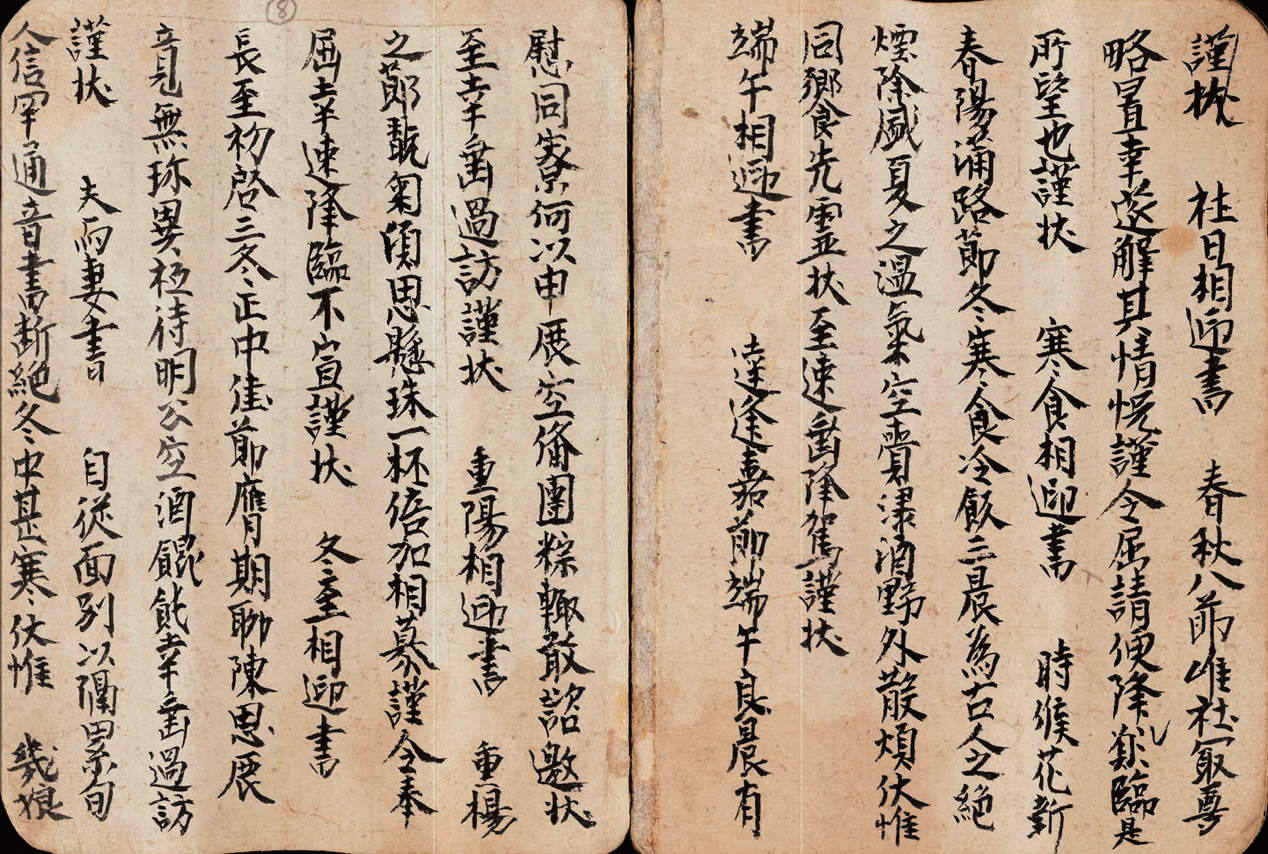 謹狀 社日相迎書 春秋八節唯社冣尊
略置幸遂解其情怳謹令屈請便降臨是
所望也謹狀 寒食相迎書 時候花新
春陽滿路節冬寒食冷飯三晨為古人之絶
煙除盛夏之溫氣空賫渌酒野外散煩伏惟
同饗先靈狀至速垂降駕謹狀
端午相迎書 達逢嘉節端午良晨有
慰同寮何以申展空俻團粽輙敢諮邀狀
至幸垂過訪謹狀 重陽相迎書 重楊
之節翫菊傾思懸珠一杯倍加相慕謹令奉
屈幸速降臨不宣謹狀 冬至相迎書
長至初啓三冬正中佳節膺期聊陳思展
竟無珎異祗待明公空酒餛飩幸垂過訪
謹狀 夫与妻書 自從面別以隔累旬
人信罕通音書斷絶冬中甚寒伏惟 幾娘